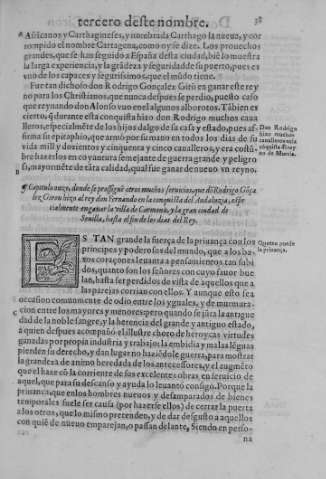 tercero deste nombre. 38
A Africanos y Carthagineses, y nombrada Carthago la nueua, y cor
rompido el nombre Cartagena, como oy se dize. Los prouechos
grandes, que se han seguido a España desta ciudad, biē lo muestra
la larga experiencia, y la grādeza y seguridad de su puerto, pues es
vno de los capaces y segurissimos, que el mūdo tiene.
Fue tan dichoso don Rodrigo Gonçalez Girō en ganar este rey
no para los Christianos, que nunca despues se perdio, puesto caso
que reynando don Alonso vuo en el algunos alborotos. Tābien es
cierto, q̄ durante esta conquista hizo don Rodrigo muchos caua
lleros, especialmēte de los hijos dalgo de su casa y estado, pues afirma
su epitaphio, que armò por su mano en todos los dias de su
vida mill y dozientos y cinquenta y cinco caualleros, y era costū
bre hazerlos en coyuntura semejante de guerra grande y peligro
B sa, mayormēte de tāta calidad, qual fue ganar de nueuo vn reyno.
Don Rodrigo
hizo muchos
caualleros en la
cōquista del rey
no de Murcia.
¶ Capitulo onze, donde se prosiguē otros muchos seruicios, que dō Rodrigo Gōça
lez Giron hizo al rey don Fernando en la conquista del Andaluzia, especialmente
en ganar la villa de Carmona, y la gran ciudad de
Seuilla, hasta el fin de los dias del Rey.
ES TAN grande la fuerça de la priuança con los
principes y poderosos del mundo, que a los baxos
coraçones leuanta a pensamientos tan subidos,
quanto son los señores con cuyo fauor buelan,
hasta ser perdidos de vista de aquellos que a
las parejas corrian con ellos. Y aunque esto sea
Quanto puede
la priuança.
occasion communmente de odio entre los yguales, y de murmuracion
entre los mayores y menores: pero quando se jūta la antigue
C dad de la noble sangre, y la herencia del grande y antiguo estado,
a quien despues acompañò el illustre choro de heroycas virtudes
ganadas por propia industria y trabajo, la embidia y malas lēguas
pierden su derecho, y dan lugar no haziēdole guerra, para mostrar
la grandeza de animo heredada de los antecessores, y el augmēto
que el hase cō la corriente de sus excelentes obras, en seruicio de
aquel, que para su descanso y ayuda lo leuantò consigo. Porque la
priuança, que en los hombres nueuos y desamparados de bienes
temporales suele ser causa (por hazerse ellos) de cerrar la puerta
a los otros, que lo mismo pretenden, y de dar desgusto a aquellos
con quiē de nueuo emparejan, o passan delante, Siendo en perso-
na